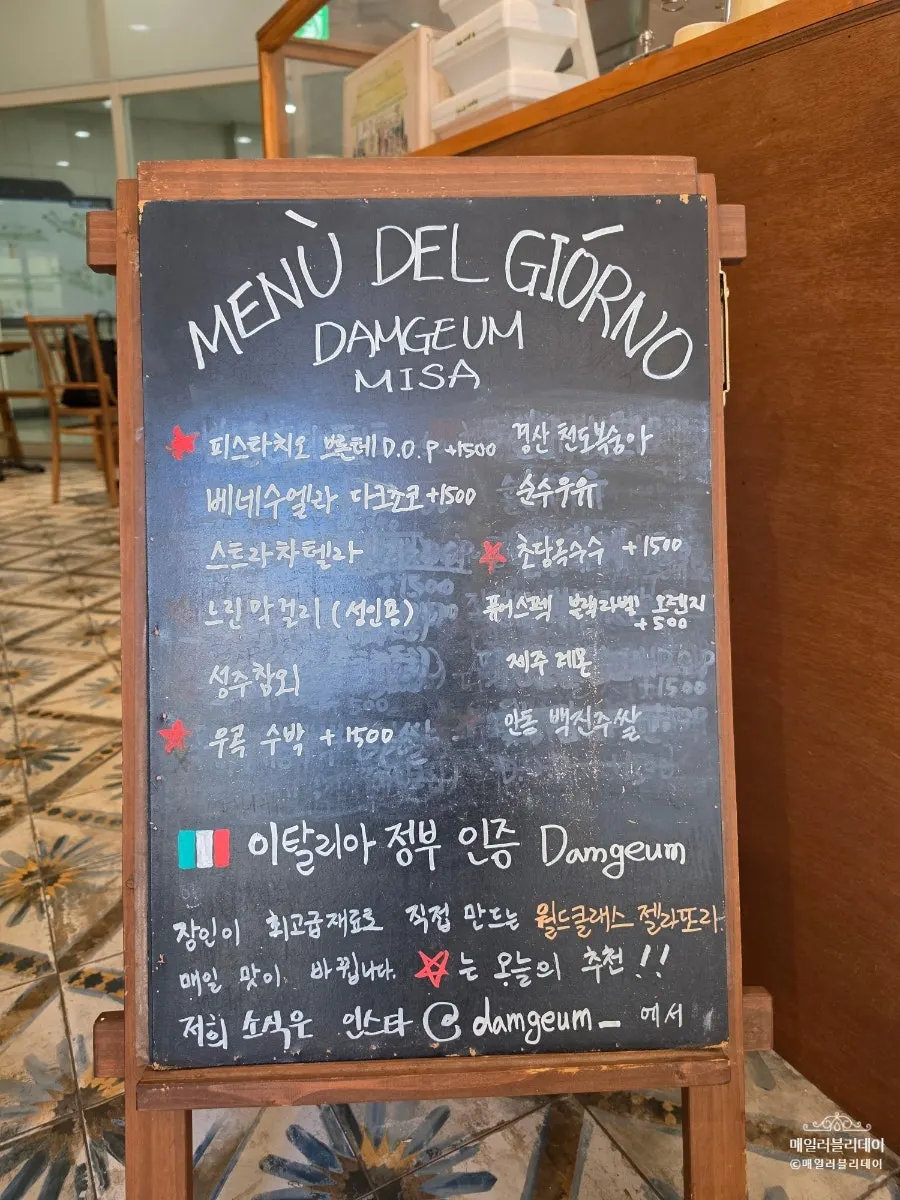 MENÙ DEL GIÓRNO
DAMGEUM
MISA
피스타치오 브론테 D.O.P +1500
베네수엘라 다크쵸코 +1500
스트라챠텔라
느린막걸리 (성인용)
성주참외
우곡 수박 +1500
경산 천도복숭아
순수우유
초당옥수수 +1500
퓨어스펙 블랙라벨 오렌지
+500
제주 레몬
안동 백진주쌀
이탈리아 정부 인증 Damgeum
장인이 최고급재료로 직접 만드는 월드클래스 젤라또라
매일 맛이 바뀝니다. ☆는 오늘의 추천!!
저희 소식은 인스타 @damgeum_ 에서
매일러블리데이
©매일러블리데이